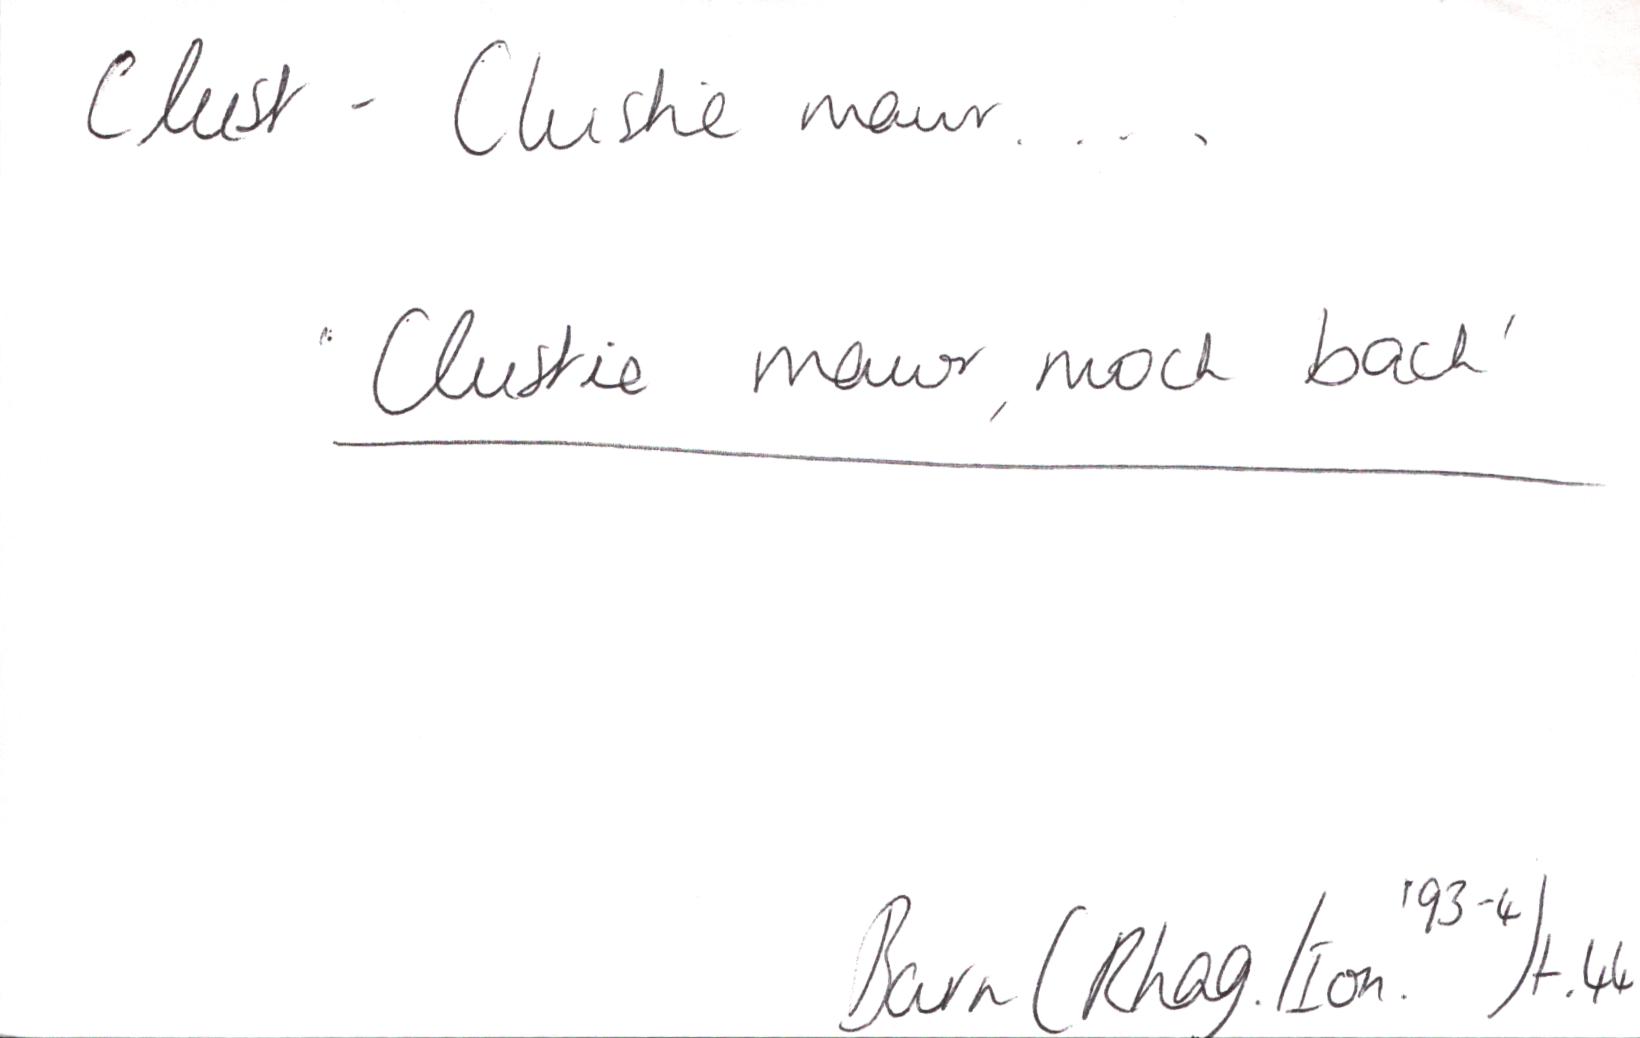 Clust - Clustie mawr.....
"Clustie mawr, moch bach'
Barn (Rhag./Ion. '93-4) t.44